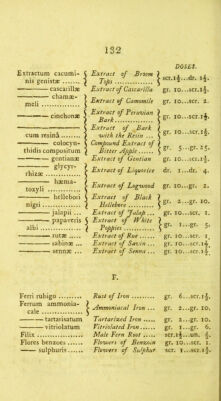 132
DOSES.
Extractum cacuminis genistæ Extract of Broom Tops scr.1½...dr. 1½.
cascarillæ Extract of Cascarilla gr. 10...scr.1½.
chamæmeli Extract of Camomile gr. 10...scr. 2.
cinchonæ Extract of Peruvian Bark gr. 10...scr.1½.
cum resinâ Extract of Bark with the Resin ... gr. 10...scr.1½.
colocynthidis compositum Compound Extract of Bitter Apple gr. 5...gr.25.
gentianæ Extract of Gentian gr. 10...scr.1½.
glycyrrhizæ Extract of Liquorice dr. 1...dr. 4.
hæmatoxyli Extract of Logwood gr. 10...gr. 2.
hellebori nigri Extract of Black Hellebore gr. 2...gr. 10.
jalapii ... Extract of Jalap ... gr. 10...scr. 1.
papaveris albi Extract of White Poppies gr. 1...gr. 5.
rutæ Extract of Rue gr. 10...scr. 1.
sabinæ ... Extract of Savin gr. 10...scr.1½.
sennæ ... Extract of Senna ... gr. 10...scr.1½.
F.
Ferri rubigo Rust of Iron gr. 6...scr.1½.
Ferrum ammoniacale Ammoniacal Iron ... gr. 2...gr. 10.
tartarisatum Tartarized Iron gr. 2...gr. 10.
vitriolatum Vitriolated Iron gr. 1...gr. 6.
Filix Male Fern Root scr.1½...un. ½.
Flores benzoes Flowers of Benzoin gr. 10...scr. 1.
sulphuris Flowers of Sulphur scr. 1...scr.1½.